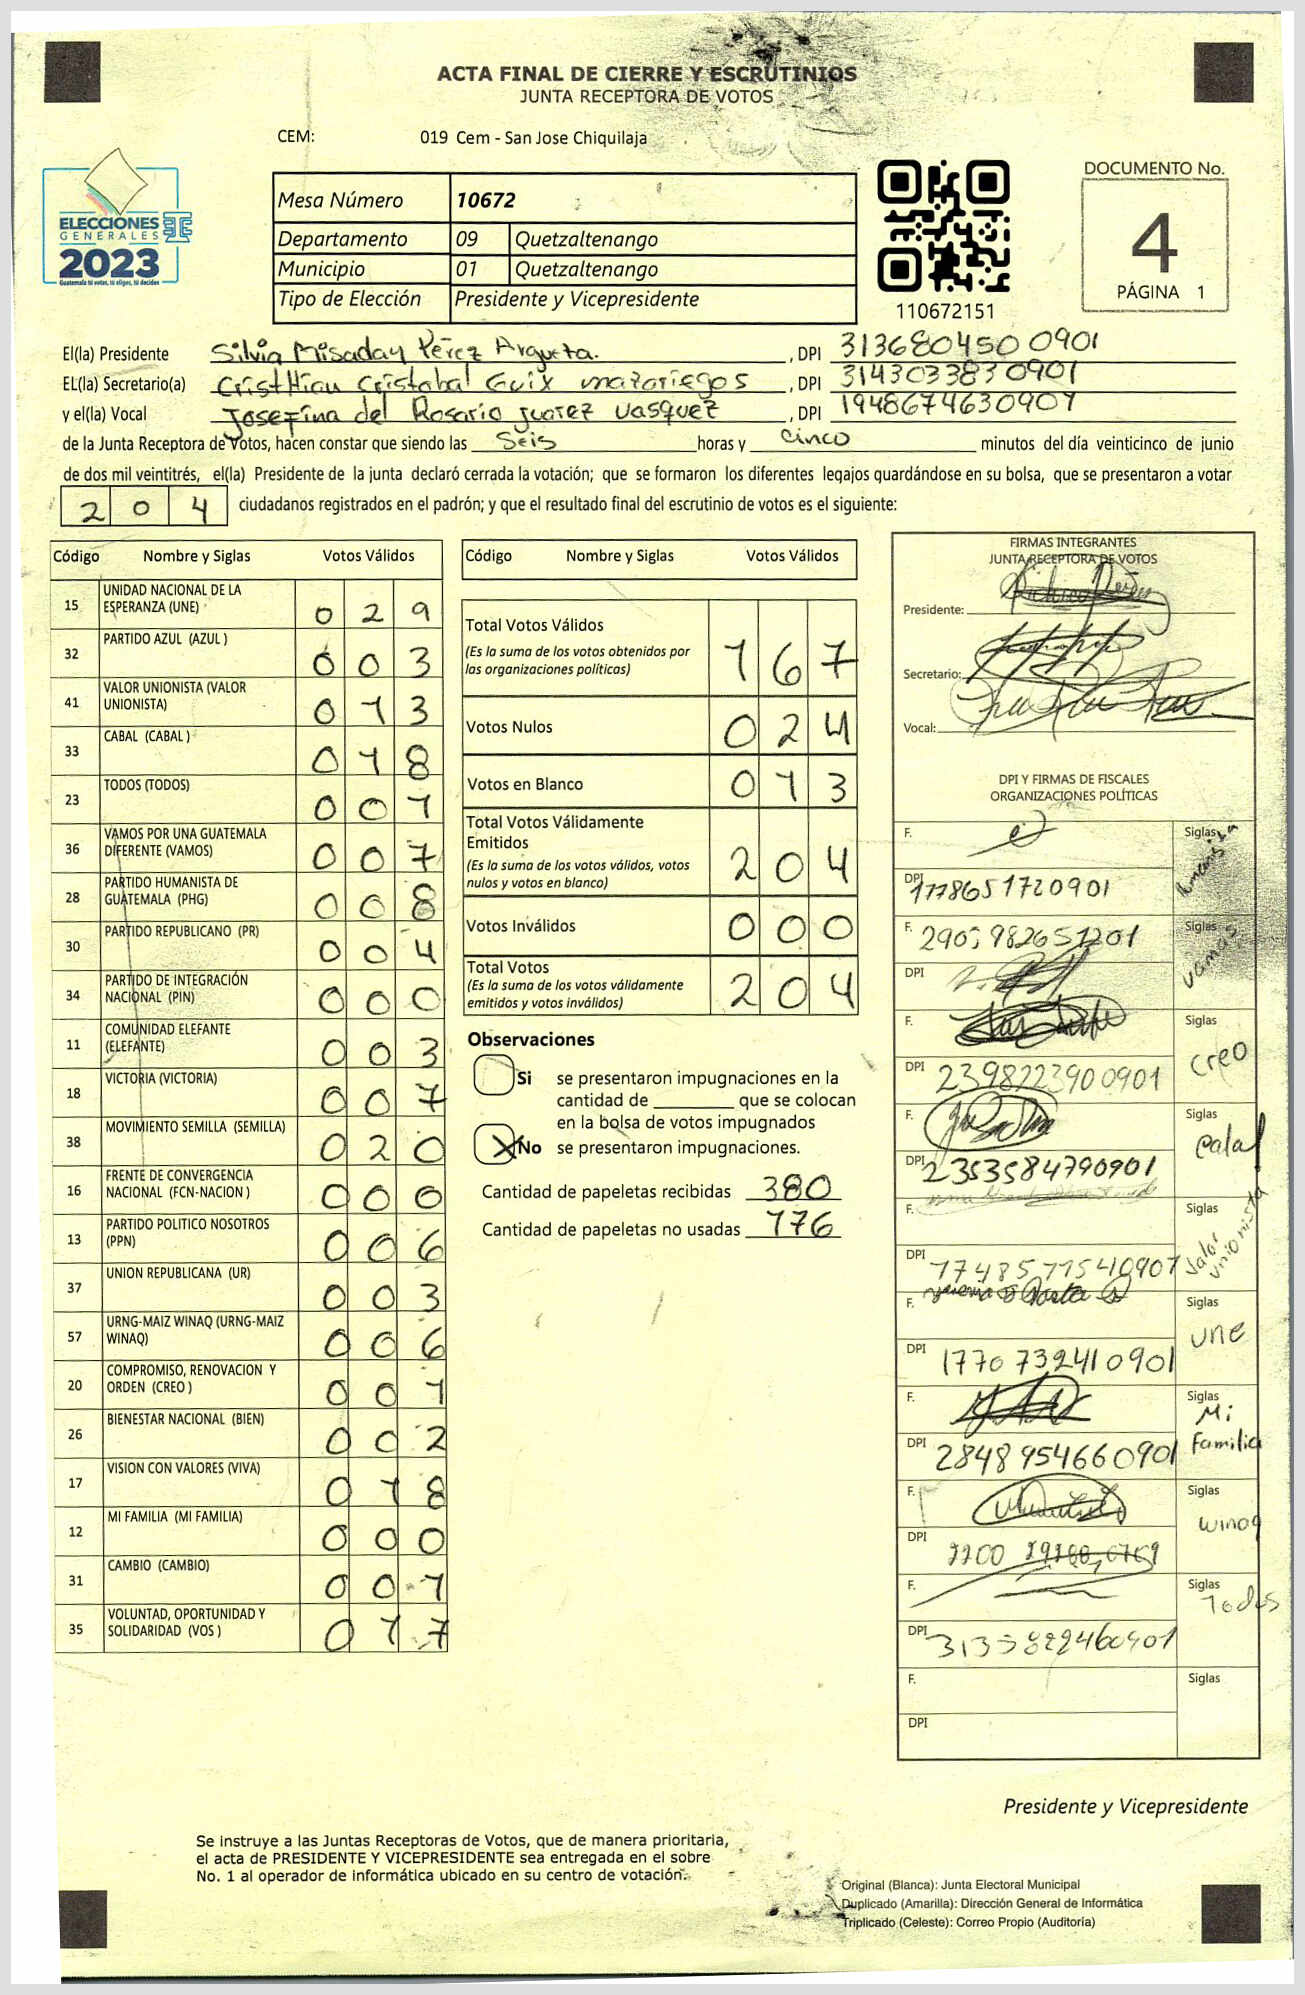 ACTA FINAL DE CIERRE Y ESCRUTINIOS
JUNTA RECEPTORA DE VOTOS
CEM: 019 Cem - San Jose Chiquilaja
ELECCIONES
GENERALES
2023
Guatemala tú votas, tú eliges, tú decides
Mesa Número 10672
Departamento 09 Quetzaltenango
Municipio 01 Quetzaltenango
Tipo de Elección Presidente y Vicepresidente
110672151
DOCUMENTO No.
4
PÁGINA 1
El(la) Presidente Silvia Misaday Pérez Argueta. , DPI 313680450 0901
EL(la) Secretario(a) CristHian Cristobal Guix mazariegos , DPI 314303383 0901
y el(la) Vocal Josefina del Rosario Juarez Vasquez , DPI 1948674630901
de la Junta Receptora de Votos, hacen constar que siendo las Seis horas y cinco minutos del día veinticinco de junio
de dos mil veintitrés, el(la) Presidente de la junta declaró cerrada la votación; que se formaron los diferentes legajos guardándose en su bolsa, que se presentaron a votar
2 0 4 ciudadanos registrados en el padrón; y que el resultado final del escrutinio de votos es el siguiente:
Código Nombre y Siglas Votos Válidos
15 UNIDAD NACIONAL DE LA ESPERANZA (UNE) 0 2 9
32 PARTIDO AZUL (AZUL ) 0 0 3
41 VALOR UNIONISTA (VALOR UNIONISTA) 0 1 3
33 CABAL (CABAL ) 0 1 8
23 TODOS (TODOS) 0 0 1
36 VAMOS POR UNA GUATEMALA DIFERENTE (VAMOS) 0 0 7
28 PARTIDO HUMANISTA DE GUATEMALA (PHG) 0 0 8
30 PARTIDO REPUBLICANO (PR) 0 0 4
34 PARTIDO DE INTEGRACIÓN NACIONAL (PIN) 0 0 0
11 COMUNIDAD ELEFANTE (ELEFANTE) 0 0 3
18 VICTORIA (VICTORIA) 0 0 7
38 MOVIMIENTO SEMILLA (SEMILLA) 0 2 0
16 FRENTE DE CONVERGENCIA NACIONAL (FCN-NACION ) 0 0 0
13 PARTIDO POLITICO NOSOTROS (PPN) 0 0 6
37 UNION REPUBLICANA (UR) 0 0 3
57 URNG-MAIZ WINAQ (URNG-MAIZ WINAQ) 0 0 6
20 COMPROMISO, RENOVACION Y ORDEN (CREO ) 0 0 1
26 BIENESTAR NACIONAL (BIEN) 0 0 2
17 VISION CON VALORES (VIVA) 0 1 8
12 MI FAMILIA (MI FAMILIA) 0 0 0
31 CAMBIO (CAMBIO) 0 0 1
35 VOLUNTAD, OPORTUNIDAD Y SOLIDARIDAD (VOS ) 0 1 7
Código Nombre y Siglas Votos Válidos
Total Votos Válidos 1 6 7
(Es la suma de los votos obtenidos por
las organizaciones políticas)
Votos Nulos 0 2 4
Votos en Blanco 0 1 3
Total Votos Válidamente
Emitidos 2 0 4
(Es la suma de los votos válidos, votos
nulos y votos en blanco)
Votos Inválidos 0 0 0
Total Votos 2 0 4
(Es la suma de los votos válidamente
emitidos y votos inválidos)
Observaciones
Si se presentaron impugnaciones en la
cantidad de ________ que se colocan
en la bolsa de votos impugnados
X No se presentaron impugnaciones.
Cantidad de papeletas recibidas 380
Cantidad de papeletas no usadas 176
FIRMAS INTEGRANTES
JUNTA RECEPTORA DE VOTOS
Presidente:
Secretario:
Vocal:
DPI Y FIRMAS DE FISCALES
ORGANIZACIONES POLÍTICAS
F. Siglas
DPI 1778651720901
F. Siglas vamos
DPI
F. Siglas creo
DPI 2398223900901
F. Siglas Cabal
DPI 2353584790901
F. Siglas Valor unionista
DPI 1748577540901
F. Siglas une
DPI 1770 732410901
F. Siglas Mi Familia
DPI 2848 954660901
F. Siglas winaq
DPI
F. Siglas Todos
DPI
F. Siglas
DPI
Presidente y Vicepresidente
Se instruye a las Juntas Receptoras de Votos, que de manera prioritaria,
el acta de PRESIDENTE Y VICEPRESIDENTE sea entregada en el sobre
No. 1 al operador de informática ubicado en su centro de votación.
Original (Blanca): Junta Electoral Municipal
Duplicado (Amarilla): Dirección General de Informática
Triplicado (Celeste): Correo Propio (Auditoría)